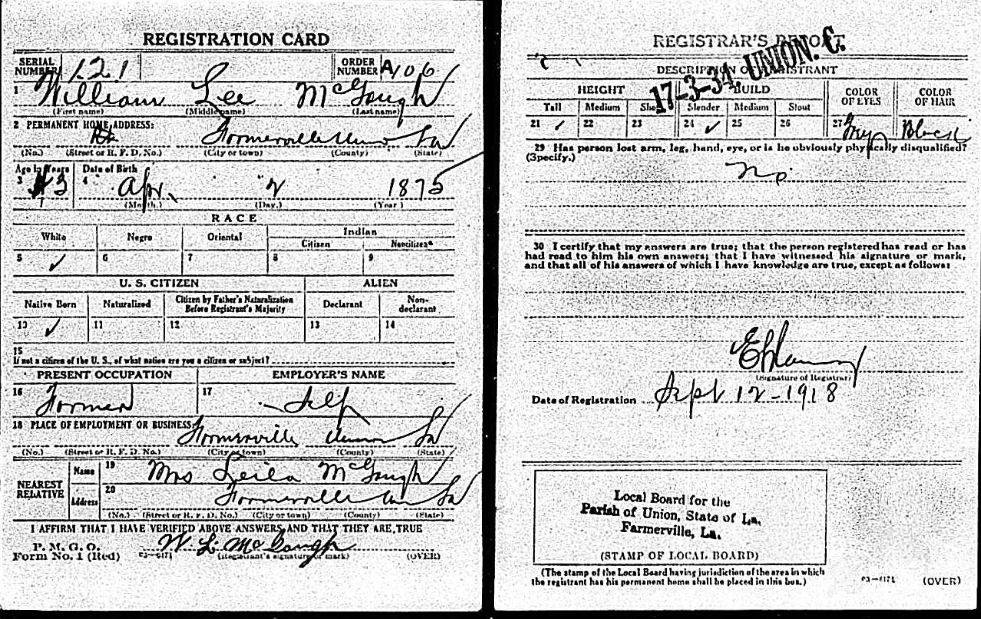 REGISTRATION CARD
SERIAL NUMBER 121 ORDER NUMBER A406
1 William Lee McGough
(First name) (Middle name) (Last name)
2 PERMANENT HOME ADDRESS:
Farmerville Union La
(No.) (Street or R. F. D. No.) (City or town) (County) (State)
Age in Years Date of Birth
3 43 4 Apr. 2 1875
(Month.) (Day.) (Year)
RACE
White Negro Oriental Indian
Citizen Noncitizen
5 ✓ 6 7 8 9
U. S. CITIZEN ALIEN
Native Born Naturalized Citizen by Father's Naturalization Before Registrant's Majority Declarant Non-declarant
10 ✓ 11 12 13 14
15
If not a citizen of the U. S., of what nation are you a citizen or subject?
PRESENT OCCUPATION EMPLOYER'S NAME
16 Farmer 17 Self
18 PLACE OF EMPLOYMENT OR BUSINESS:
Farmerville Union La
(No.) (Street or R. F. D. No.) (City or town) (County) (State)
NEAREST RELATIVE
Name 19 Mrs Leila McGough
Address 20 Farmerville Un La
(No.) (Street or R. F. D. No.) (City or town) (County) (State)
I AFFIRM THAT I HAVE VERIFIED ABOVE ANSWERS AND THAT THEY ARE TRUE
P. M. G. O.
Form No. 1 (Red) 03—6171 W. L. McGough
(Registrant's signature or mark) (OVER)
REGISTRAR'S REPORT
17-3-34. UNION. C.
DESCRIPTION OF REGISTRANT
HEIGHT BUILD COLOR OF EYES COLOR OF HAIR
Tall Medium Short Slender Medium Stout
21 ✓ 22 23 24 ✓ 25 26 27 Grey Black
29 Has person lost arm, leg, hand, eye, or is he obviously physically disqualified?
(Specify.)
No
30 I certify that my answers are true; that the person registered has read or has
had read to him his own answers; that I have witnessed his signature or mark,
and that all of his answers of which I have knowledge are true, except as follows:
(Signature of Registrar)
Date of Registration Sept 12-1918
Local Board for the
Parish of Union, State of La,
Farmerville, La.
(STAMP OF LOCAL BOARD)
(The stamp of the Local Board having jurisdiction of the area in which
the registrant has his permanent home shall be placed in this box.)
03—6171 (OVER)